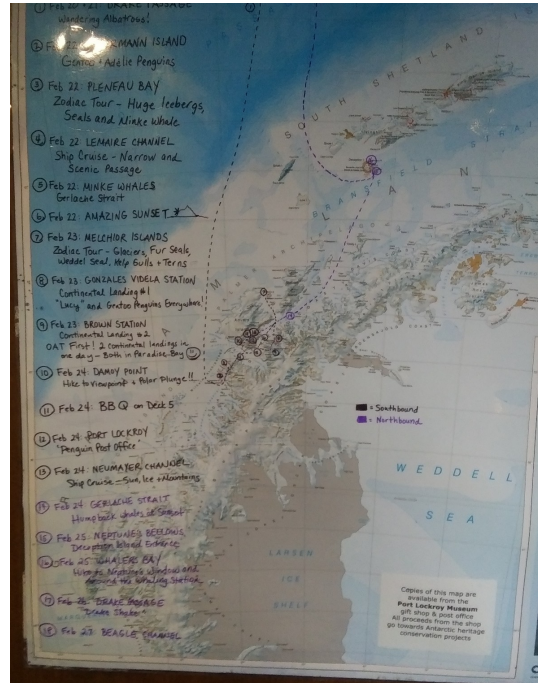 ① Feb 20 + 21: DRAKE PASSAGE
Wandering Albatross!
② Feb 22: HOVERMANN ISLAND
Gentoo + Adélie Penguins
③ Feb 22: PLENEAU BAY
Zodiac Tour - Huge Icebergs,
Seals and Minke Whale
④ Feb 22: LEMAIRE CHANNEL
Ship Cruise - Narrow and
Scenic Passage
⑤ Feb 22: MINKE WHALES
Gerlache Strait
⑥ Feb 22: AMAZING SUNSET
⑦ Feb 23: MELCHIOR ISLANDS
Zodiac Tour - Glaciers, Fur Seals,
Weddel Seal, Kelp Gulls + Terns
⑧ Feb 23: GONZALES VIDELA STATION
Continental Landing #1
"Lucy" and Gentoo Penguins Everywhere!
⑨ Feb 23: BROWN STATION
Continental Landing #2
OAT First! 2 continental landings in
one day - Both in Paradise Bay
⑩ Feb 24: DAMOY POINT
Hike to Viewpoint + Polar Plunge!!
⑪ Feb 24: BBQ on Deck 5
⑫ Feb 24: PORT LOCKROY
"Penguin Post Office"
⑬ Feb 24: NEUMAYER CHANNEL
Ship Cruise - Sun, Ice + Mountains
⑭ Feb 24: GERLACHE STRAIT
Humpback Whales at Sunset
⑮ Feb 25: NEPTUNE'S BELLOWS,
Deception Island Entrance
⑯ Feb 25: WHALERS BAY
Hike to Neptune's Window and
Around the Whaling Station
⑰ Feb 26: DRAKE PASSAGE
"Drake Shake"
⑱ Feb 27: BEAGLE CHANNEL
SOUTH SHETLAND
BRANSFIELD STRAIT
= Southbound
= Northbound
WEDDELL
SEA
LARSEN
ICE
SHELF
Copies of this map are
available from the
Port Lockroy Museum
gift shop & post office
All proceeds from the shop
go towards Antarctic heritage
conservation projects